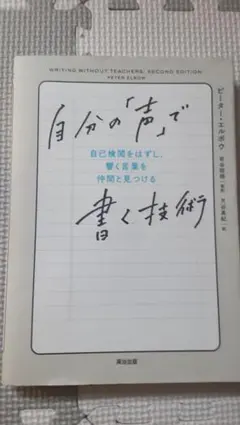 WRITING WITHOUT TEACHERS, SECOND EDITION
PETER ELBOW
自分の「声」で
自己検閲をはずし、
響く言葉を
仲間と見つける
書く技術
ピーター・エルボウ
岩谷聡徳
月谷真紀 訳
英治出版